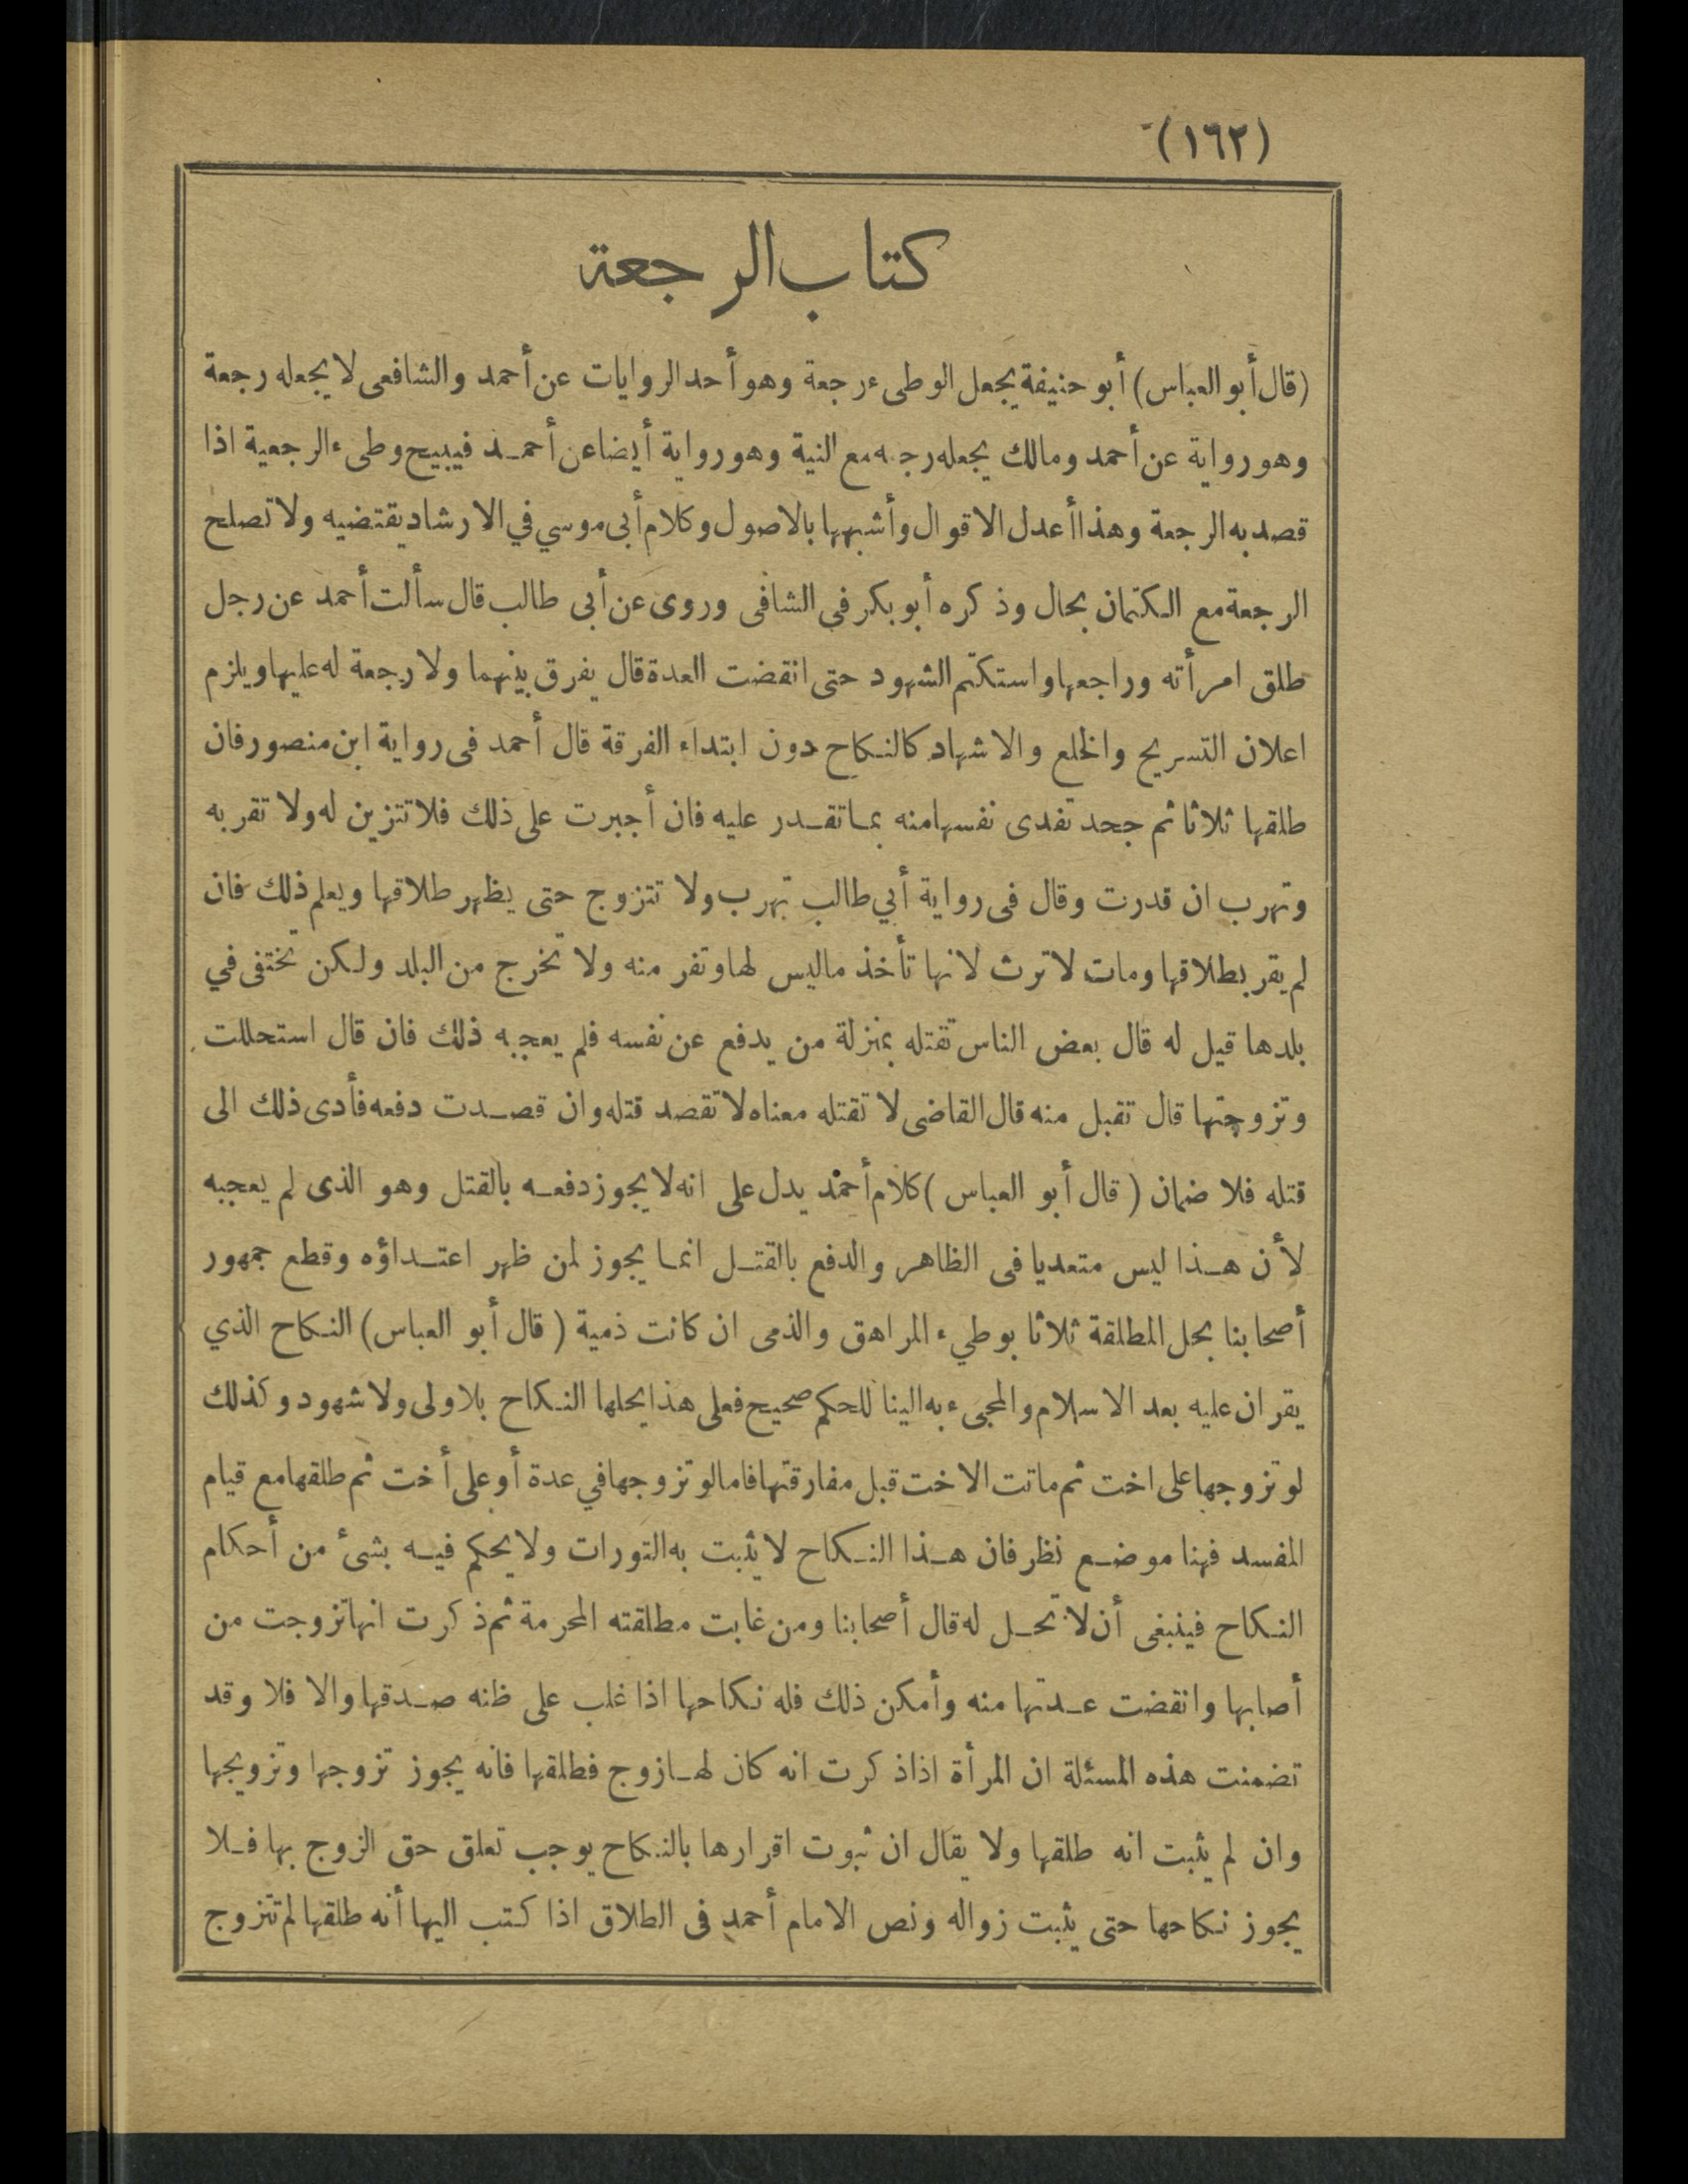 (١٦٢)
كتاب الرجعة
(قال أبو العباس) أبو حنيفة يجعل الوطىء رجعة وهو أحد الروايات عن أحمد والشافعى لا يجعله رجعة
وهو رواية عن أحمد ومالك يجعله رجعة مع النية وهو رواية أيضا عن أحمد فيبيح وطىء الرجعية اذا
قصد به الرجعة وهذا أعدل الاقوال وأشبهها بالاصول وكلام أبى موسي في الارشاد يقتضيه ولا تصلح
الرجعة مع الكتمان بحال وذكره أبو بكر في الشافى وروى عن أبى طالب قال سألت أحمد عن رجل
طلق امرأته وراجعها واستكتم الشهود حتى انقضت العدة قال يفرق بينهما ولا رجعة له عليها ويلزم
اعلان التسريح والخلع والاشهاد كالنكاح دون ابتداء الفرقة قال أحمد فى رواية ابن منصور فان
طلقها ثلاثا ثم جحد تفدى نفسها منه بما تقدر عليه فان أجبرت على ذلك فلا تتزين له ولا تقربه
وتهرب ان قدرت وقال فى رواية أبي طالب تهرب ولا تتزوج حتى يظهر طلاقها ويعلم ذلك فان
لم يقر بطلاقها ومات لا ترث لانها تأخذ ما ليس لها وتفر منه ولا تخرج من البلد ولكن تختفى في
بلدها قيل له قال بعض الناس تقتله بمنزلة من يدفع عن نفسه فلم يعجبه ذلك فان قال استحللت
وتزوجتها قال تقبل منه قال القاضى لا تقتله معناه لا تقصد قتله وان قصدت دفعه فأدى ذلك الى
قتله فلا ضمان (قال أبو العباس) كلام أحمد يدل على انه لا يجوز دفعه بالقتل وهو الذى لم يعجبه
لأن هذا ليس متعديا فى الظاهر والدفع بالقتل انما يجوز لمن ظهر اعتداؤه وقطع جمهور
أصحابنا بحل المطلقة ثلاثا بوطيء المراهق والذمى ان كانت ذمية (قال أبو العباس) النكاح الذي
يقران عليه بعد الاسلام والمجىء به الينا للحكم صحيح فعلى هذا يحلها النكاح بلا ولى ولا شهود وكذلك
لو تزوجها على اخت ثم ماتت الاخت قبل مفارقتها فاما لو تزوجها في عدة أو على أخت ثم طلقها مع قيام
المفسد فهنا موضع نظر فان هذا النكاح لا يثبت به التورات ولا يحكم فيه بشئ من أحكام
النكاح فينبغى أن لا تحل له قال أصحابنا ومن غابت مطلقته المحرمة ثم ذكرت انها تزوجت من
أصابها وانقضت عدتها منه وأمكن ذلك فله نكاحها اذا غلب على ظنه صدقها والا فلا وقد
تضمنت هذه المسئلة ان المرأة اذا ذكرت انه كان لها زوج فطلقها فانه يجوز تزوجها وتزويجها
وان لم يثبت انه طلقها ولا يقال ان ثبوت اقرارها بالنكاح يوجب تعلق حق الزوج بها فلا
يجوز نكاحها حتى يثبت زواله ونص الامام أحمد فى الطلاق اذا كتب اليها أنه طلقها لم تتزوج